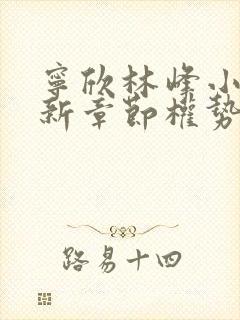 寧欣林峰小
新章節權勢
路易十四